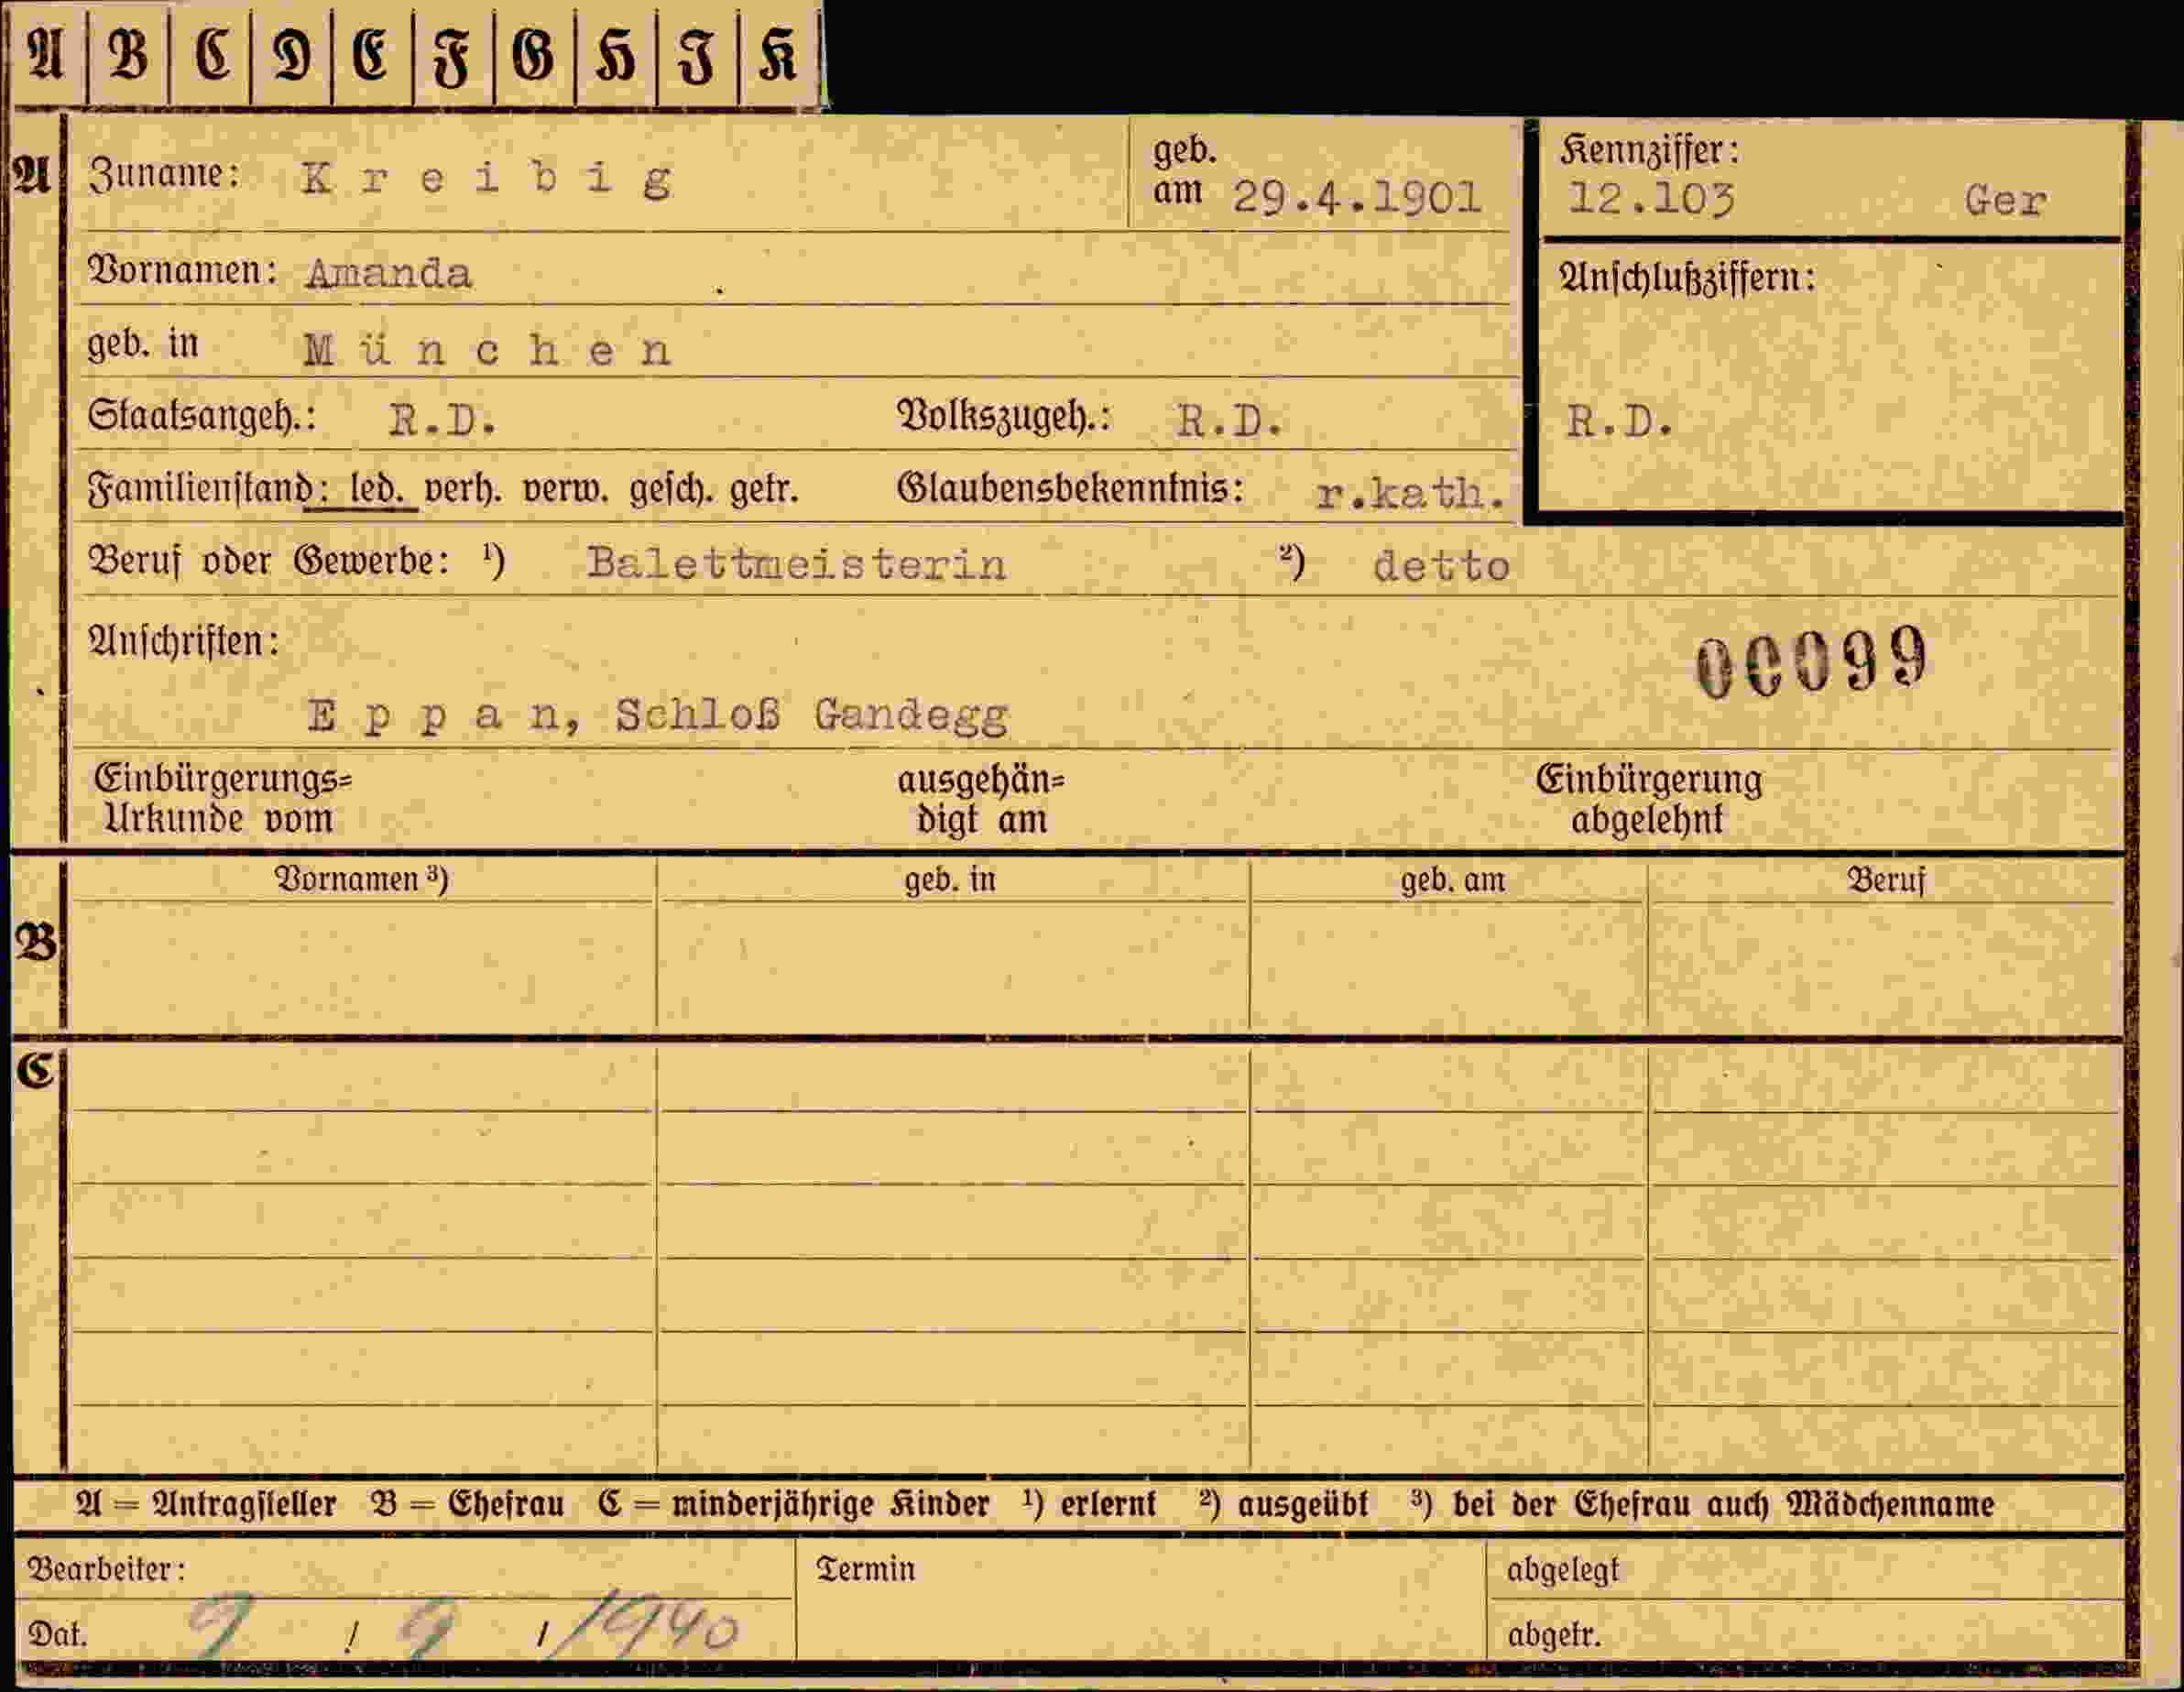 A B C D E F G H I K
A Zuname: Kreibig geb. am 29.4.1901 Kennziffer: 12.103 Ger
Vornamen: Amanda Anschlußziffern:
geb. in München
Staatsangeh.: R.D. Volkszugeh.: R.D. R.D.
Familienstand: led. verh. verw. gesch. getr. Glaubensbekenntnis: r.kath.
Beruf oder Gewerbe: ¹) Balettmeisterin ²) detto
Anschriften: 00099
Eppan, Schloß Gandegg
Einbürgerungs= ausgehän= Einbürgerung
Urkunde vom digt am abgelehnt
Vornamen ³) geb. in geb. am Beruf
B
C
A = Antragsteller B = Ehefrau C = minderjährige Kinder ¹) erlernt ²) ausgeübt ³) bei der Ehefrau auch Mädchenname
Bearbeiter: Termin abgelegt
Dat. 9 / 9 / 1940 abgetr.